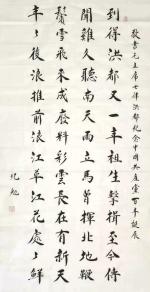 敬書毛主席七律洪都紀念中國共產黨百年誕辰
到得洪都又一年祖生擊楫至今傳
聞雞久聽南天雨立馬曾揮北地鞭
鬢雪飛來成廢料彩雲長在有新天
年々後浪推前浪江草江花處々鮮